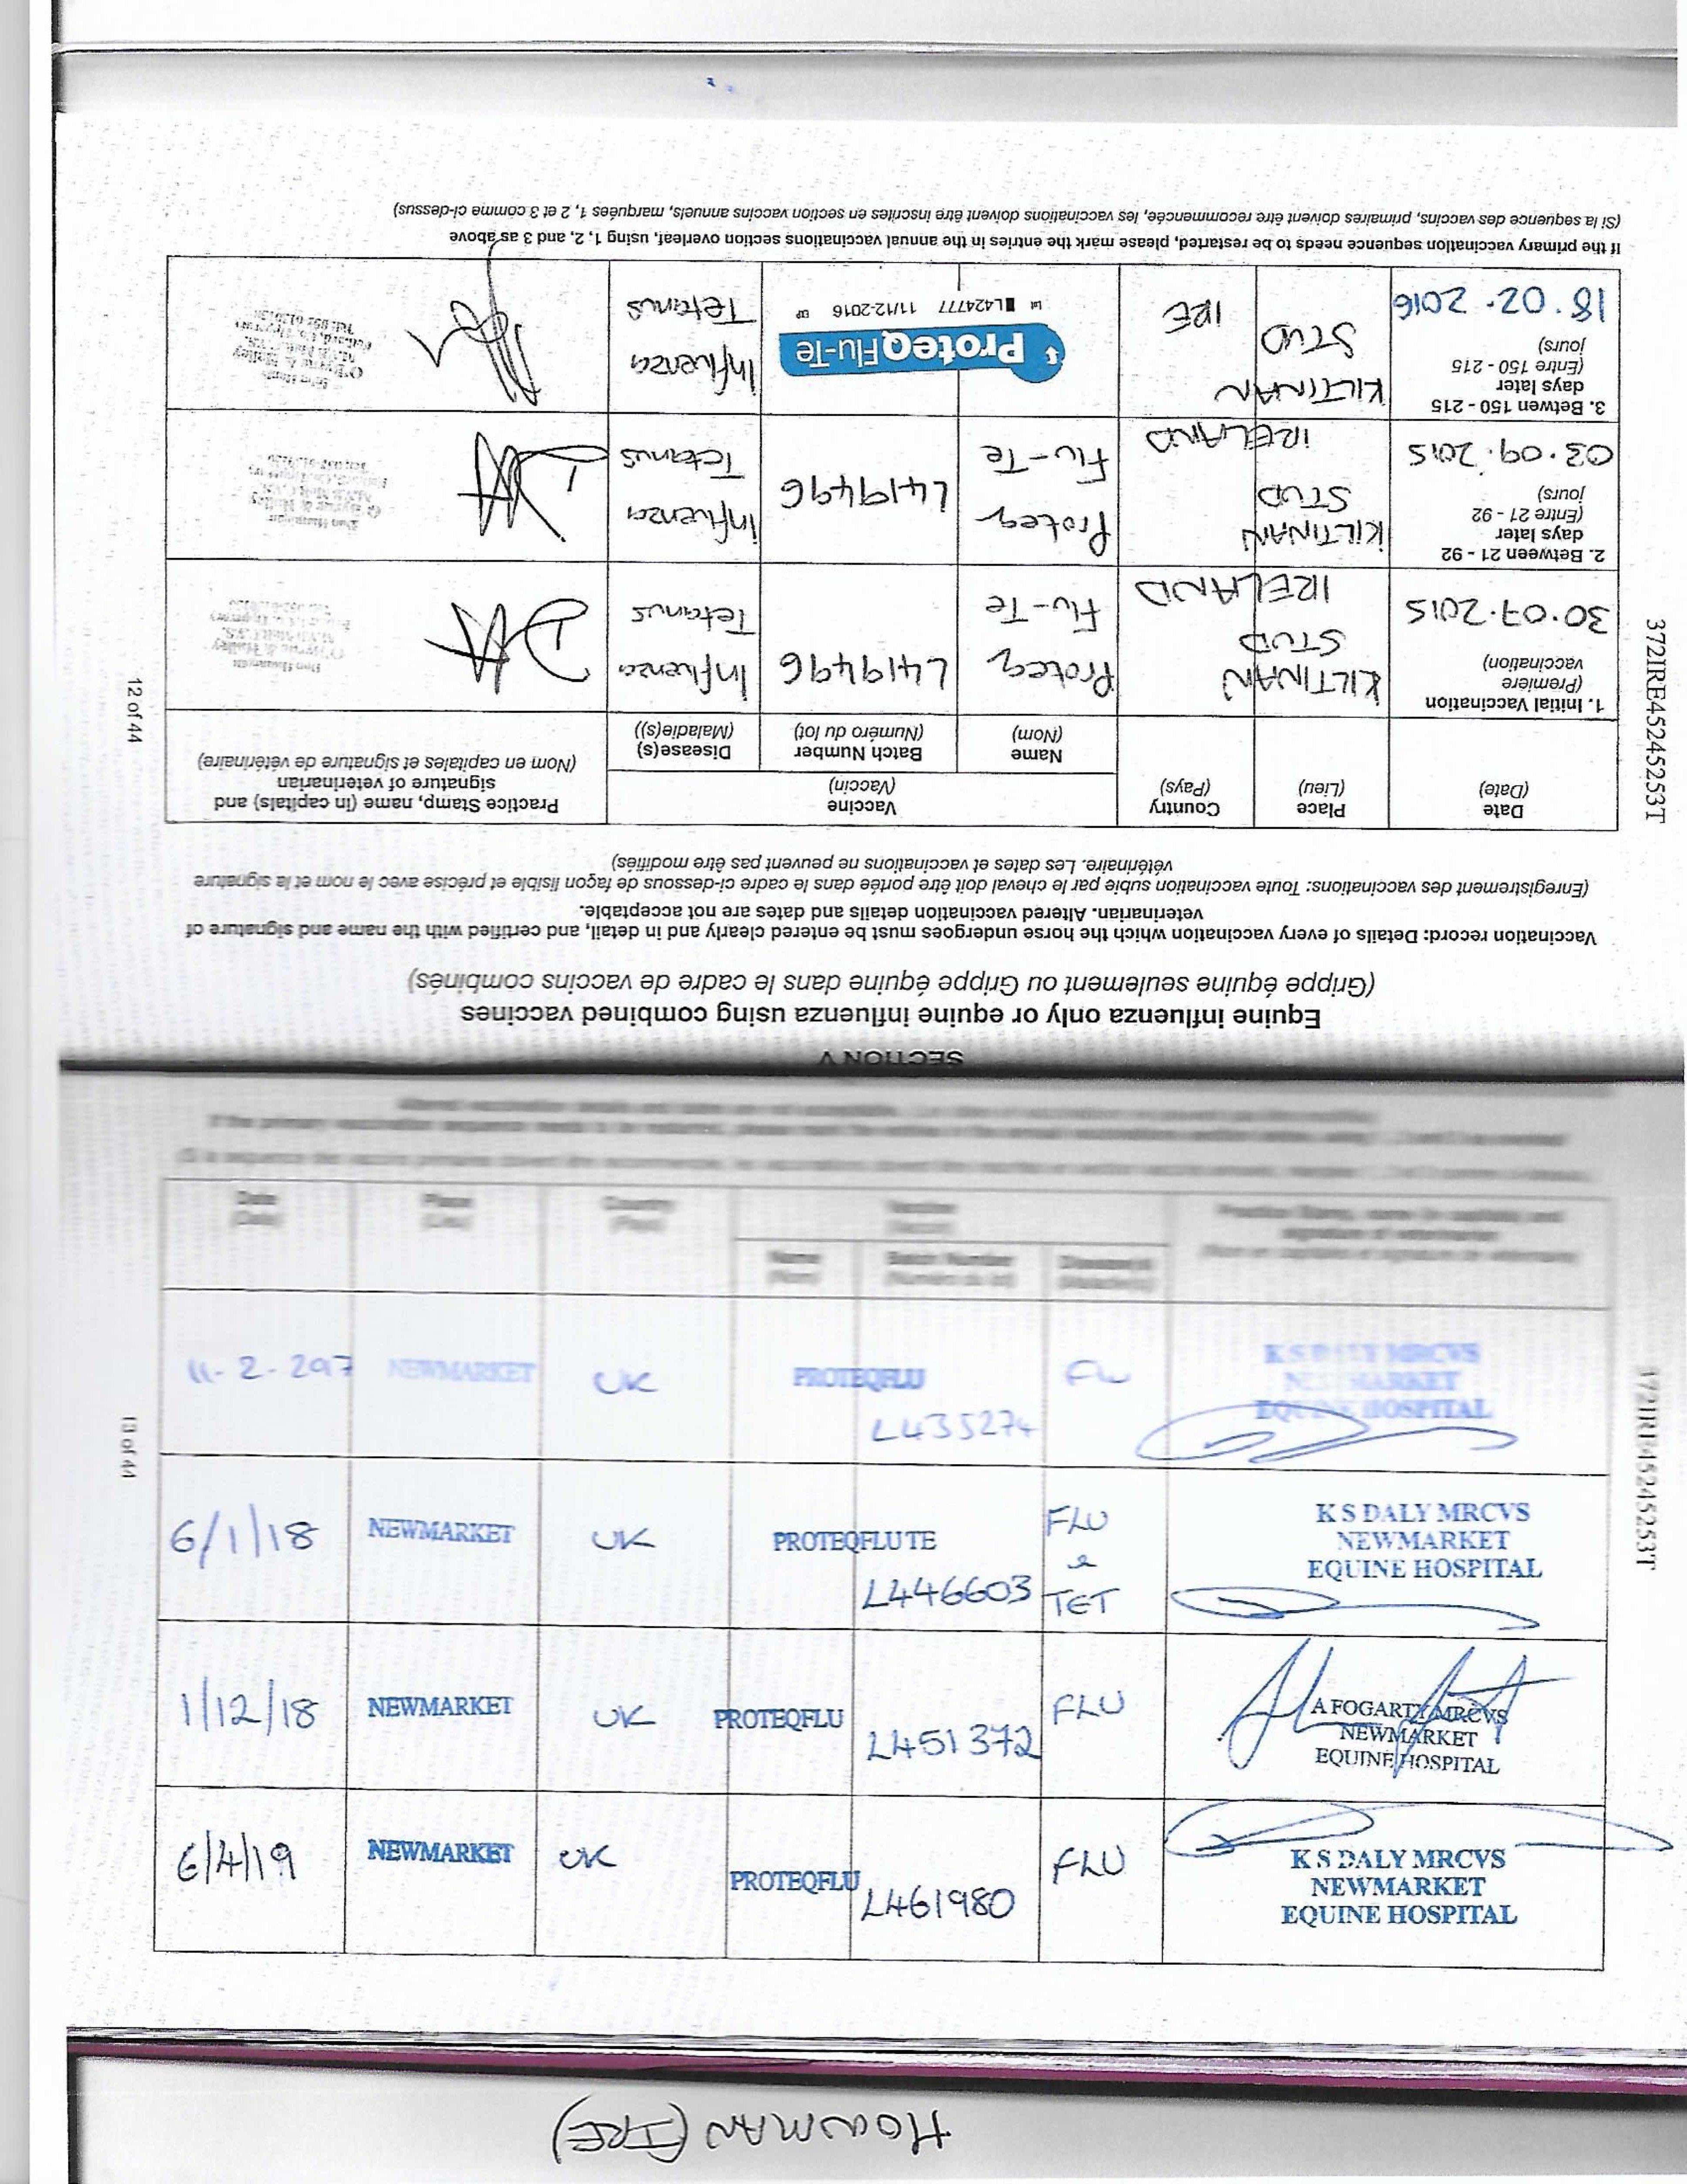 SECTION V
Equine influenza only or equine influenza using combined vaccines
(Grippe équine seulement ou Grippe équine dans le cadre de vaccins combinés)
Vaccination record: Details of every vaccination which the horse undergoes must be entered clearly and in detail, and certified with the name and signature of
veterinarian. Altered vaccination details and dates are not acceptable.
(Enregistrement des vaccinations: Toute vaccination subie par le cheval doit être portée dans le cadre ci-dessous de façon lisible et précise avec le nom et la signature
vétérinaire. Les dates et vaccinations ne peuvent pas être modifiés)
Date
(Date)
Place
(Lieu)
Country
(Pays)
Vaccine
(Vaccin)
Name
(Nom)
Batch Number
(Numéro du lot)
Disease(s)
(Maladie(s))
Practice Stamp, name (in capitals) and
signature of veterinarian
(Nom en capitales et signature de vétérinaire)
1. Initial Vaccination
(Première
vaccination)
30.07.2015
KILTINAN
STUD
IRELAND
Proteq
Flu-Te
L419496
Influenza
Tetanus
2. Between 21 - 92
days later
(Entre 21 - 92
jours)
03.09.2015
KILTINAN
STUD
IRELAND
Proteq
Flu-Te
L419496
Influenza
Tetanus
3. Betwen 150 - 215
days later
(Entre 150 - 215
jours)
18.02.2016
KILTINAN
STUD
IRE
ProteqFlu-Te
Lot L424777 11/12-2016
Influenza
Tetanus
If the primary vaccination sequence needs to be restarted, please mark the entries in the annual vaccinations section overleaf, using 1, 2, and 3 as above
(Si la sequence des vaccins, primaires doivent être recommencée, les vaccinations doivent être inscrites en section vaccins annuels, marquées 1, 2 et 3 comme ci-dessus)
372IRE45245253T
12 of 44
Date
Place
Country
Name
Batch Number
11-2-2017 NEWMARKET UK PROTEQFLU L435274 FLU
K S DALY MRCVS
NEWMARKET
EQUINE HOSPITAL
6/1/18 NEWMARKET UK PROTEQFLU TE L446603 FLU & TET
K S DALY MRCVS
NEWMARKET
EQUINE HOSPITAL
1/12/18 NEWMARKET UK PROTEQFLU L451372 FLU
A FOGARTY MRCVS
NEWMARKET
EQUINE HOSPITAL
6/4/19 NEWMARKET UK PROTEQFLU L461980 FLU
K S DALY MRCVS
NEWMARKET
EQUINE HOSPITAL
372IRE45245253T
13 of 44
HOWMAN (IRE)